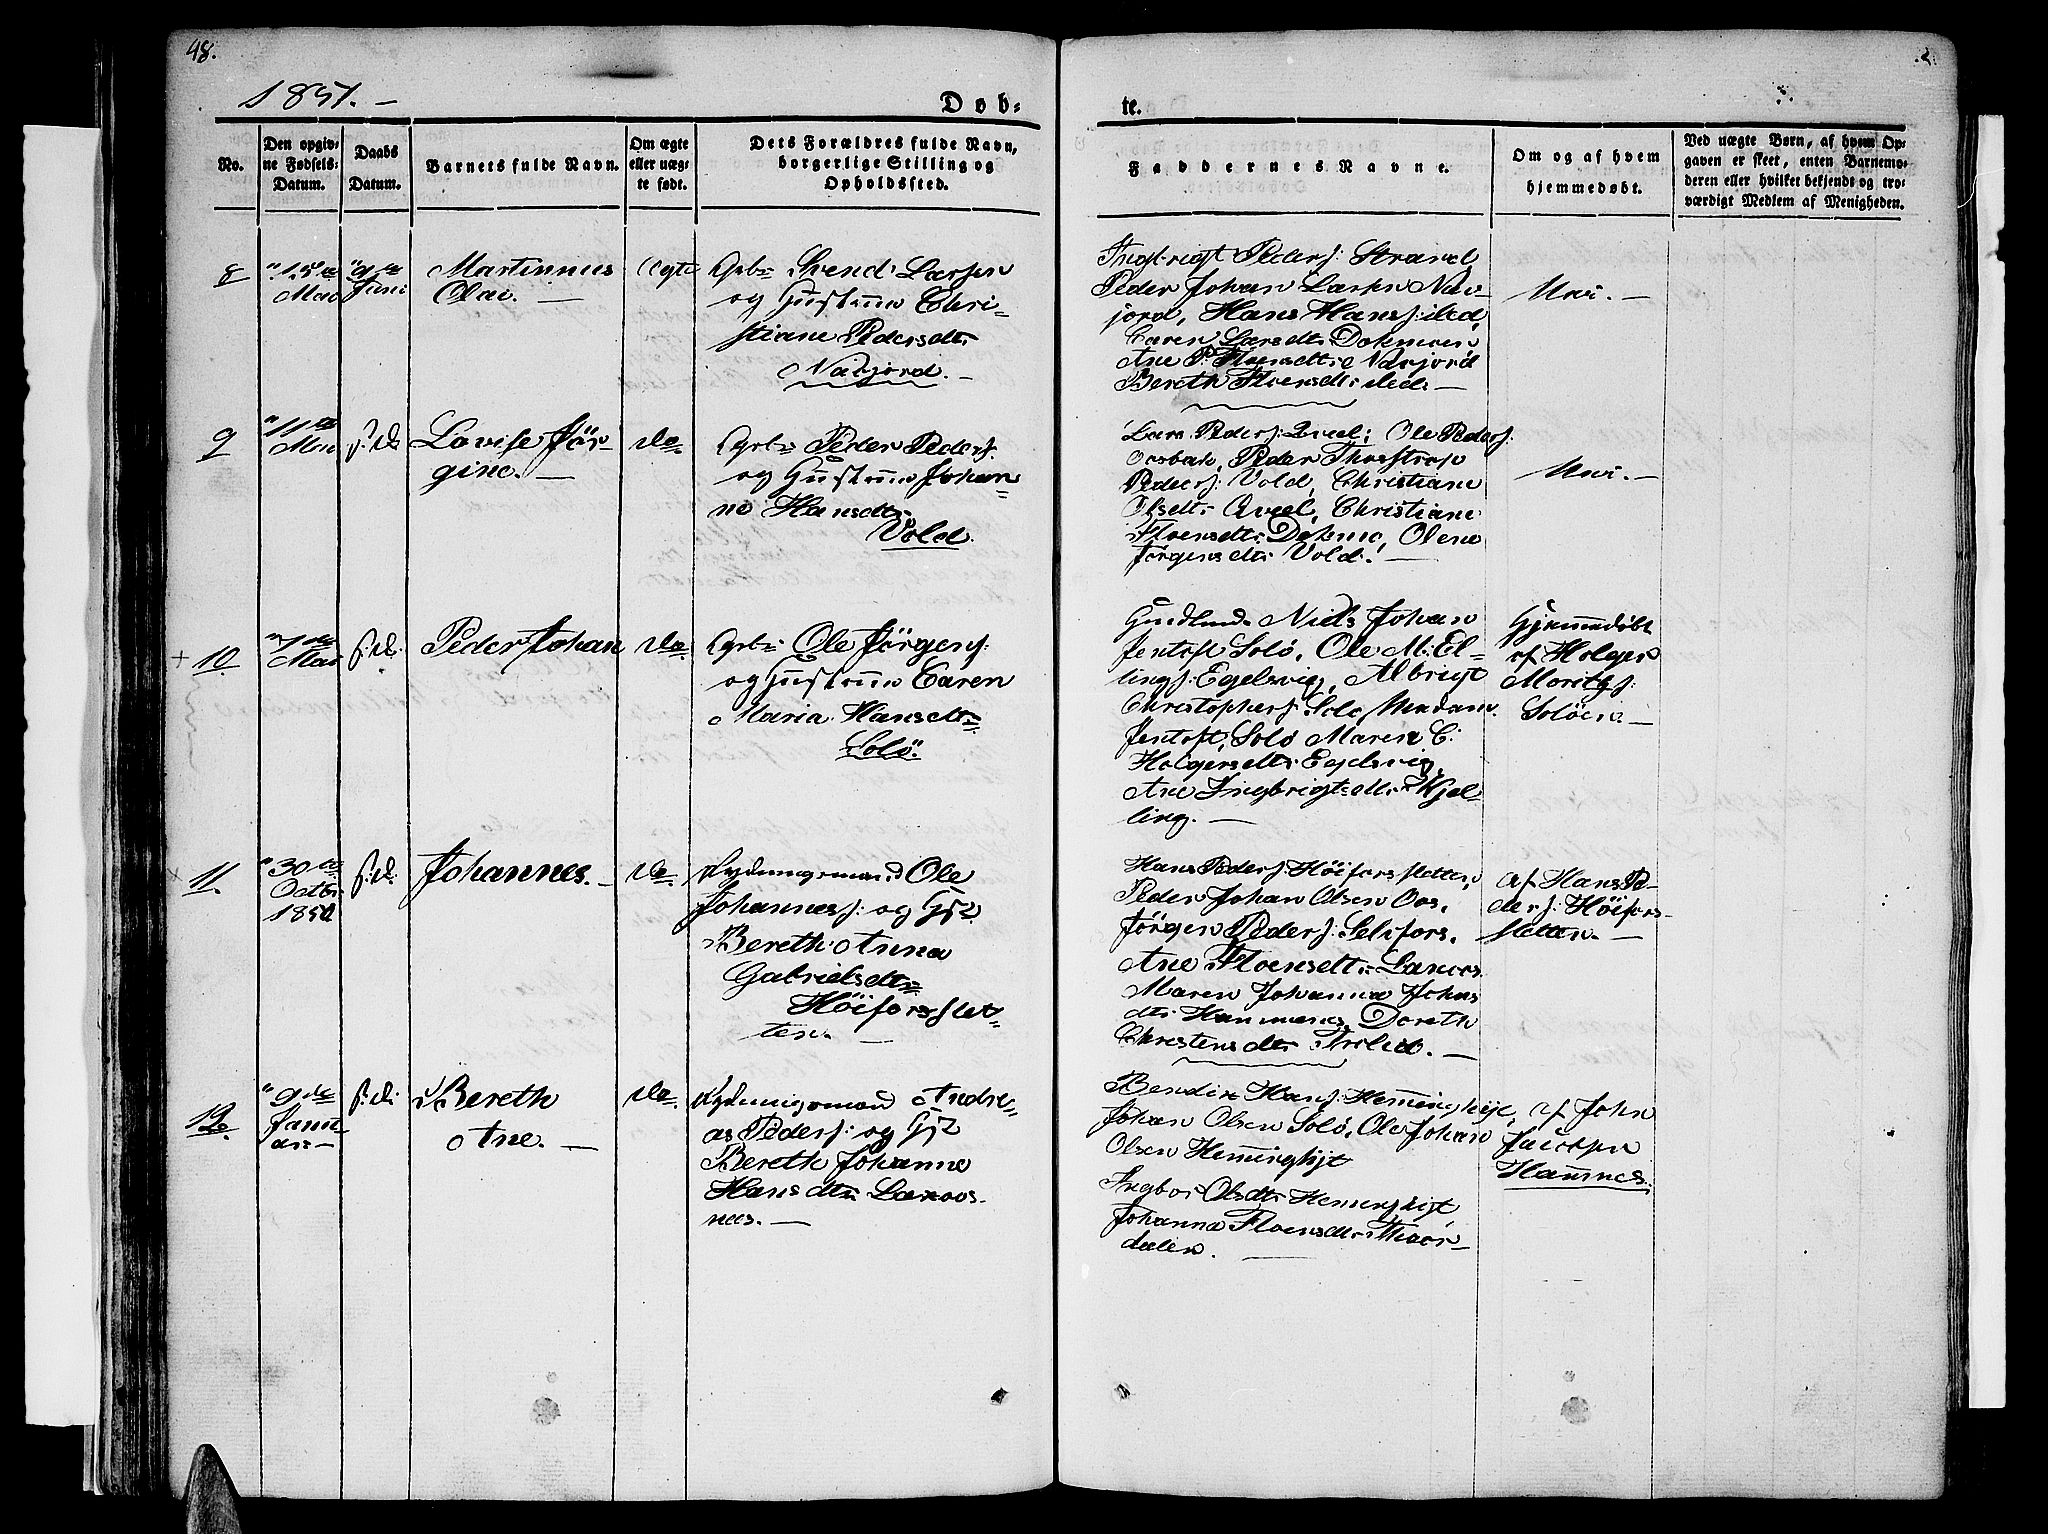 48.
1851. —
Dob-
te.
No.
Den opgiv-
ne Fødsels-
Datum.
Daabs
Datum.
Barnets fulde Navn.
Om ægte
eller uæg-
te født.
Dets Forældres fulde Navn,
borgerlige Stilling og
Opholdssted.
Faddernes Navne.
Om og af hvem
hjemmedøbt.
Ved uægte Børn, af hvem Op-
gaven er skeet, enten Barnemo-
deren eller hvilket bekjendt og tro-
værdigt Medlem af Menigheden.
8
15de
Mai
9de
Juni
Martinnus
Olai. —
Ægte
Gbr: Svend Larsen
og Hustrue Chri-
stiane Pedersdtr
Næsjord. —
Ingbrigt Peders: Strand
Peder Johan Larsen Næs-
jord, Hans Hans: ibid,
Caren Larsdtr: Dokmoen
Ane P. Floensdtr: Næsjord
Bereth Floensdtr: ibid: —
Nei. —
9
11te
Mai
s: d:
Lovise Jör-
gine. —
Do.
Gbr: Peder Peders:
og Hustrue Johan-
ne Hansdtr
Vold.
Lars Peders: Qveel; Ole Peders:
Oosbak, Peder Thostrop
Peders: Vold, Christiane
Olsdtr: Qveel, Christiane
Floensdtr: Dokmo, Olene
Jörgensdtr: Vold. —
Nei. —
10.
1ste
Mai
s: d:
Peder Johan
Do.
Gbr: Ole Jörgens:
og Hustrue Caren
Maria Hansdtr:
Solö.
Handlende Niels Johan
Jentoft Solö, Ole M: El-
lings: Egelsvig, Albrigt
Christophers: Solö, Madam
Jentoft, Solö Maren C:
Holgersdtr: Egelsvig,
Ane Ingbrigtsdtr: Kjel-
ling. —
Hjemmedöbt
af Holger
Moritzs:
Solöen. —
11.
30te
Octbr
1850
s: d:
Johannes. —
Do.
Rydningsmand Ole
Johanness: og Hst
Bereth Anna
Gabrielsdtr
Höiforsslet-
ten. —
Hans Peders: Höiforssletten,
Peder Johan Olsen Oos,
Jörgen Peders: Selfors,
Ane Floensdtr: Lanoos
Maren Johanna Johns
dtr: Hamnæs, Doreth
Christensdtr: —
af Hans Pe-
ders: Höifors-
sletten. —
12.
9de
Janu-
ar
s: d:
Bereth
Ane. —
Do.
Rydningsmand Andre-
as Peders: og Hst
Bereth Johanne
Hansdtr: Lanoos
næs. —
Bendix Hans: Hemmingshyt,
Johan Olsen Solö, Ole Johan
Olsen Hemmingshyt
Ingbor Olsdtr: Hemmingshyt
Johanna Floensdtr:
dalen. —
af John
Jacobsen
Hamnes: